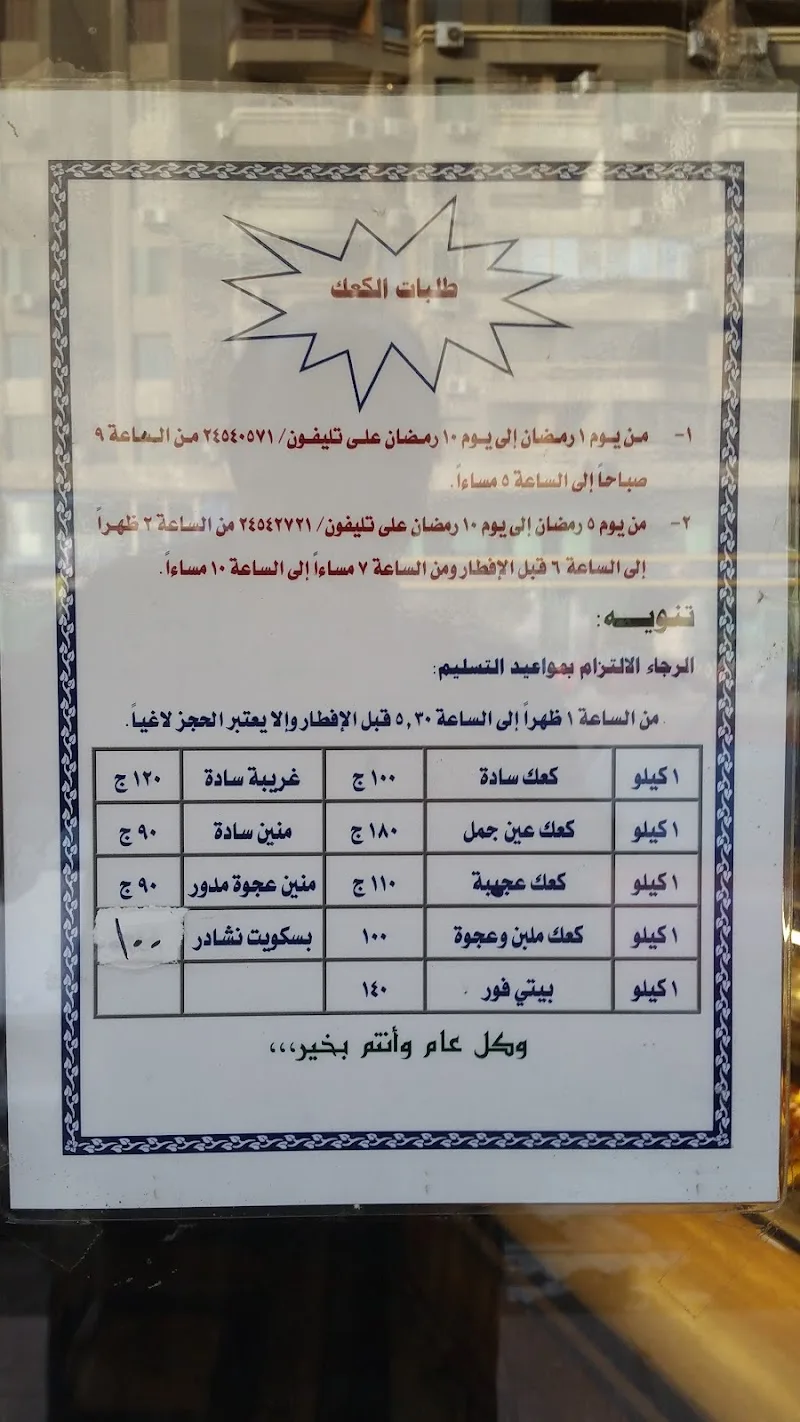 طلبات الكعك
١- من يوم ١ رمضان إلى يوم ١٠ رمضان على تليفون/ ٢٤٥٤٠٥٧١ من الساعة ٩
صباحاً إلى الساعة ٥ مساءاً.
٢- من يوم ٥ رمضان إلى يوم ١٠ رمضان على تليفون/ ٢٤٥٤٢٧٢١ من الساعة ٢ ظهراً
إلى الساعة ٦ قبل الإفطار ومن الساعة ٧ مساءاً إلى الساعة ١٠ مساءاً.
تنويه:
الرجاء الالتزام بمواعيد التسليم:
من الساعة ١ ظهراً إلى الساعة ٥,٣٠ قبل الإفطار وإلا يعتبر الحجز لاغياً.
١ كيلو كعك سادة ١٠٠ ج غريبة سادة ١٢٠ ج
١ كيلو كعك عين جمل ١٨٠ ج منين سادة ٩٠ ج
١ كيلو كعك عجمية ١١٠ ج منين عجوة مدور ٩٠ ج
١ كيلو كعك ملبن وعجوة ١٠٠ بسكويت نشادر ١٠٠
١ كيلو بيتي فور ١٤٠
وكل عام وأنتم بخير،،،